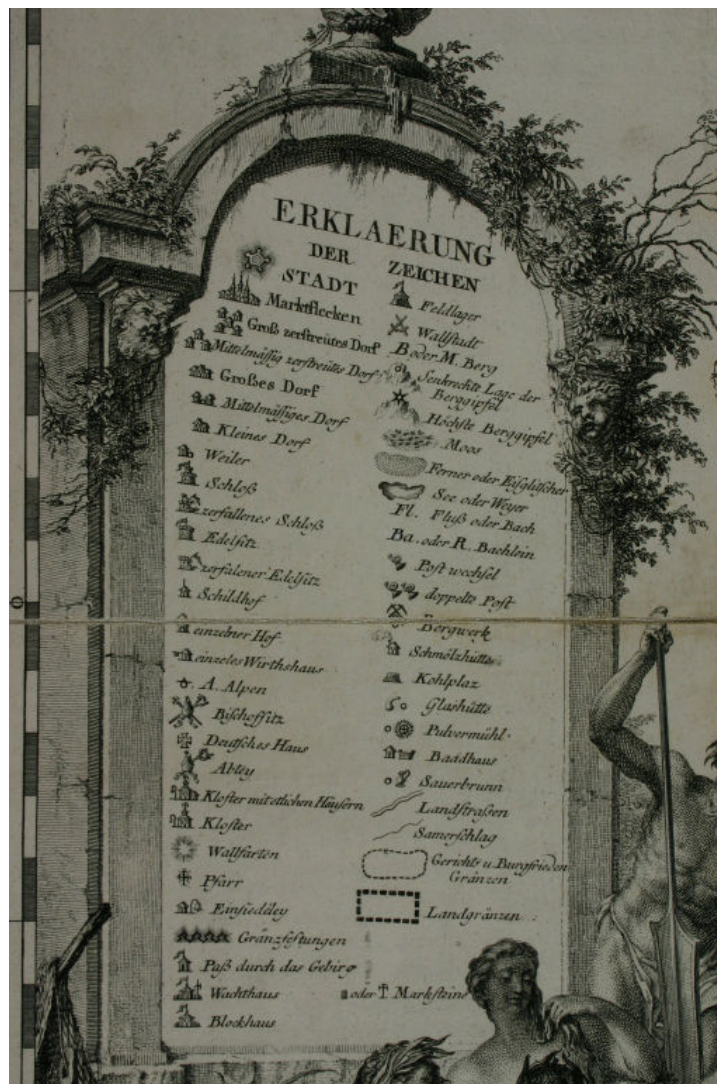 ERKLAERUNG
DER ZEICHEN
STADT
Marktflecken
Groß zerstreütes Dorf
Mittelmässig zerstreütes Dorf
Großes Dorf
Mittlmässiges Dorf
Kleines Dorf
Weiler
Schloß
zerfallenes Schloß
Edelsitz
zerfalener Edelsitz
Schildhof
einzelner Hof
einzeles Wirthshaus
A. Alpen
Bischofsitz
Deutsches Haus
Abtey
Kloster mit etlichen Häusern
Kloster
Wallfarten
Pfarr
Einsiedeley
Gränzfestungen
Paß durch das Gebirg
Wachthaus
Blockhaus
Feldlager
Wallstadt
B. oder M. Berg
Senkrechte Lage der
Berggipfel
Höchste Berggipfel
Moos
Ferner oder Eisglitscher
See oder Weyer
Fl. Fluß oder Bach
Ba. oder R. Bachlein
Post wechsel
doppelte Post
Bergwerk
Schmölzhütte
Kohlplaz
Glashütte
Pulvermühl
Baddhaus
Sauerbrunn
Landstraßen
Samerschlag
Gerichts u. Burgfrieden
Gränzen
Landgränzen
oder Marksteine